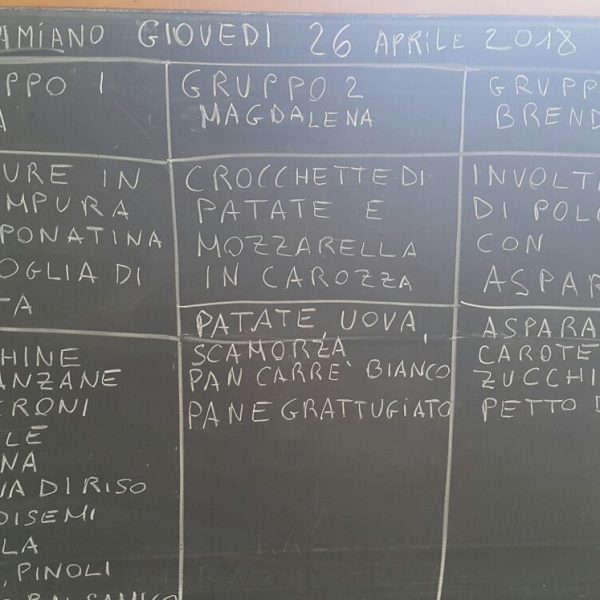 AMIANO GIOVEDI 26 APRILE 2018
UPPO 1
A
URE IN
MPURA
PONATINA
OGLIA DI
TA
HINE
ANZANE
ERONI
LE
NA
NA DI RISO
DISEMI
LA
, PINOLI
BALSAMICO
GRUPPO 2
MAGDALENA
CROCCHETTE DI
PATATE E
MOZZARELLA
IN CAROZZA
PATATE, UOVA,
SCAMORZA
PAN CARRÈ BIANCO
PANE GRATTUGIATO
GRUPP
BREND
INVOLTI
DI POLL
CON
ASPAR
ASPARA
CAROTE
ZUCCHI
PETTO D